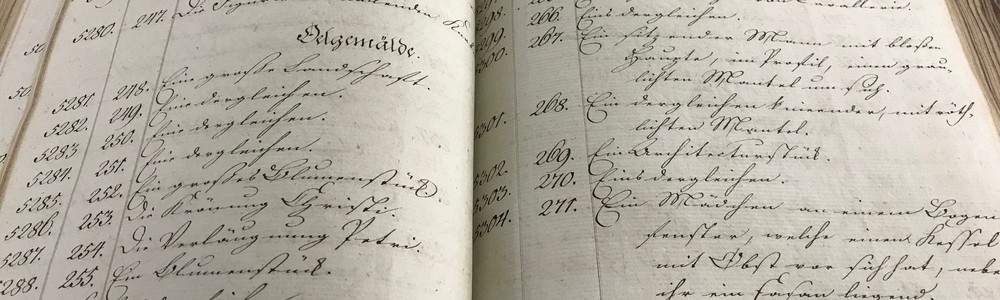 5280. 247. Die
Oelgemälde.
5281. 248. Eine große Landschaft.
5282. 249. Eine dergleichen.
5283 250. Eine dergleichen.
5284. 251. Eine dergleichen.
5285. 252. Ein großes Blumenstück.
5286. 253. Die Krönung Christi.
5287. 254. Die Verläugnung Petri.
288. 255. Ein Blumenstück.
266. Eins dergleichen.
267. Ein sitzender Mann mit bloßen
Haupte, im Profil, einen grau-
lichten Mantel um sich.
5301. 268. Ein dergleichen knieender, mit röth-
lichten Mantel.
5302. 269. Ein Architecturstück.
5303. 270. Eins dergleichen.
5304. 271. Ein Mädchen an einem Bogen
fenster, welche einen Kessel
mit Obst vor sich hat, nebe
ihr ein Fasan liegend